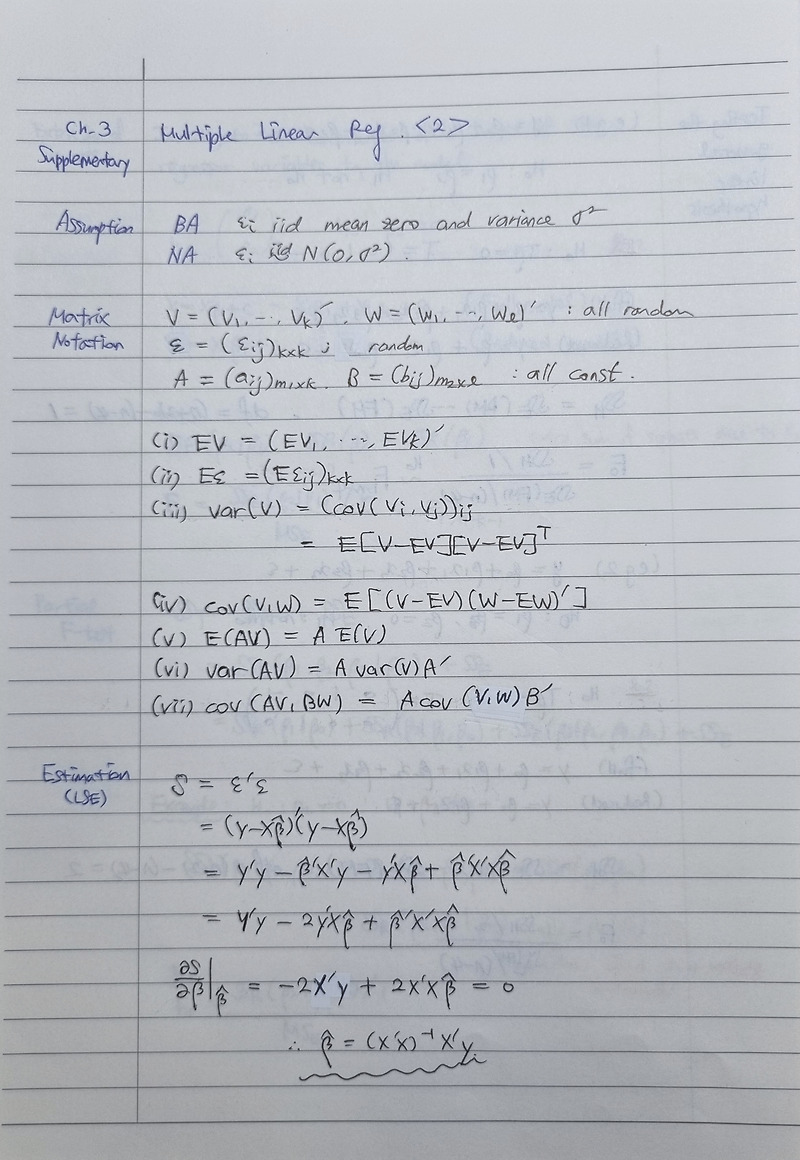 Ch.3 Multiple Linear Reg. <2>
Supplementary
Assumption BA εi iid mean zero and variance σ²
NA εi iid N(0, σ²).
Matrix V = (V1, ..., Vk)′, W = (W1, ..., Wl)′ : all random
Notation ε = (εij)k×k ; random
A = (aij)m1×k. B = (bij)m2×l : all const.
(i) EV = (EV1, ..., EVk)′
(ii) Eε = (Eεij)k×k
(iii) var(V) = (cov(Vi, Vj))ij
= E[V-EV][V-EV]ᵀ
(iv) cov(V,W) = E[(V-EV)(W-EW)′]
(v) E(AV) = A E(V)
(vi) var(AV) = A var(V)A′
(vii) cov(AV, BW) = A cov(V,W)B′
Estimation S = ε′ε
(LSE)
= (y-Xβ̂)′(y-Xβ̂)
= y′y - β̂′X′y - y′Xβ̂ + β̂′X′Xβ̂
= y′y - 2y′Xβ̂ + β̂′X′Xβ̂
∂S/∂β|β̂ = -2X′y + 2X′Xβ̂ = 0
∴ β̂ = (X′X)⁻¹X′y.